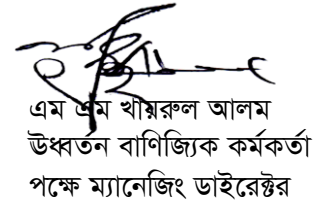 এম এম খায়রুল আলম
ঊধ্বর্তন বাণিজ্যিক কর্মকর্তা
পক্ষে ম্যানেজিং ডাইরেক্টর